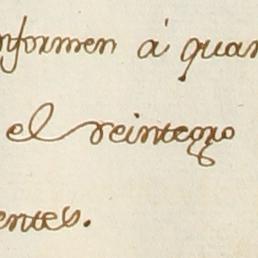 nformen á quan
el reintegro
entes.